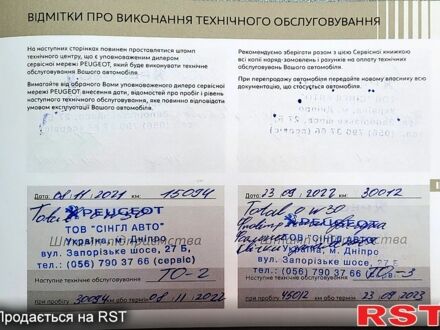 ВІДМІТКИ ПРО ВИКОНАННЯ ТЕХНІЧНОГО ОБСЛУГОВУВАННЯ
На наступних сторінках повинен проставлятися штамп
технічного центру, що є уповноваженим дилером
сервісної мережі PEUGEOT, який буде виконувати технічне
обслуговування Вашого автомобіля.
Вимагайте від обраного Вами уповноваженого дилера сервісної
мережі PEUGEOT внесення дати, відомостей про пробіг і рівень
наступного технічного обслуговування, яке повинно відповідати
умовам експлуатації Вашого автомобіля.
Рекомендуємо зберігати разом з цією Сервісної книжкою
всі копії наряд-замовлень і рахунків на оплату технічних
обслуговувань Вашого автомобіля.
При перепродажу автомобіля передайте новому власнику всю
документацію, що стосується автомобіля.
Дата: 08.11.2021 км: 15094
Total
PEUGEOT
ТОВ "СІНГЛ АВТО"
Україна, м. Дніпро
вул. Запорізьке шосе, 27 Б,
тел.: (056) 790 37 66 (сервіс)
Наступне технічне обслуговування ТО-2
при пробігу 30094 км або термін 08.11.2022
Дата: 23 09 2022 км: 30012
Total 0w30
PEUGEOT
ТОВ "СІНГЛ АВТО"
м. Дніпро
вул. Запорізьке шосе, 27 Б
тел.: (056) 790 37 66
Наступне технічне обслуговування ТО-3
при пробігу 45012 км або термін 23.09.2023
Продається на RST
RST